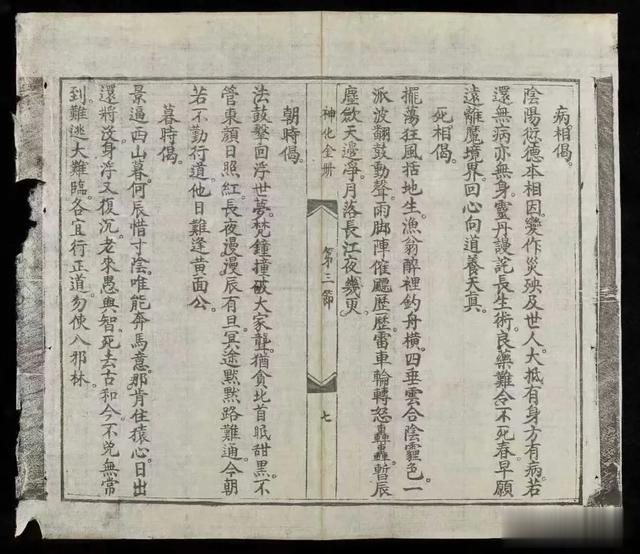 病相偈。
陰陽愆德本相因。變作災殃及世人。大抵有身方有病。若
還無病亦無身。靈丹謾託長生術。良藥難令不死春。早願
遠離魔境界。回心向道養天真。
死相偈。
擺蕩狂風括地生。漁翁醉裡釣舟橫。四垂雲合陰霾色。一
派波翻鼓動聲。雨脚陣催飃歷歷。雷車輪轉怒轟轟。暫辰
塵歛天邊淨。月落長江夜幾更
神化全冊 第三節 七
朝時偈。
法鼓聲回浮世夢。梵鐘撞破大家聾。猶貪北首眠甜黑。不
管東顏日照紅。長夜漫漫辰有旦。冥途黙黙路難通。今朝
若不勤行道。他日難逢黄面公。
暮時偈。
景逼西山暮何辰惜寸陰。唯能奔馬意。那肯住猿心。日出
還將沒。身浮又復沉。老來愚與智。死去古和今。不免無常
到。難逃大難臨。各宜行正道。勿使入邪林。